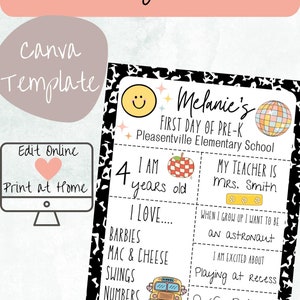 Canva
Template
Edit Online
Print at Home
Melanie's
FIRST DAY OF PRE-K
Pleasentville Elementary School
4
I AM
years old
MY TEACHER IS
Mrs. Smith
I LOVE....
BARBIES
MAC & CHEESE
SWINGS
NUMBERS
WHEN I GROW UP I WANT TO BE
an astronaut
I AM EXCITED ABOUT
Playing at recess